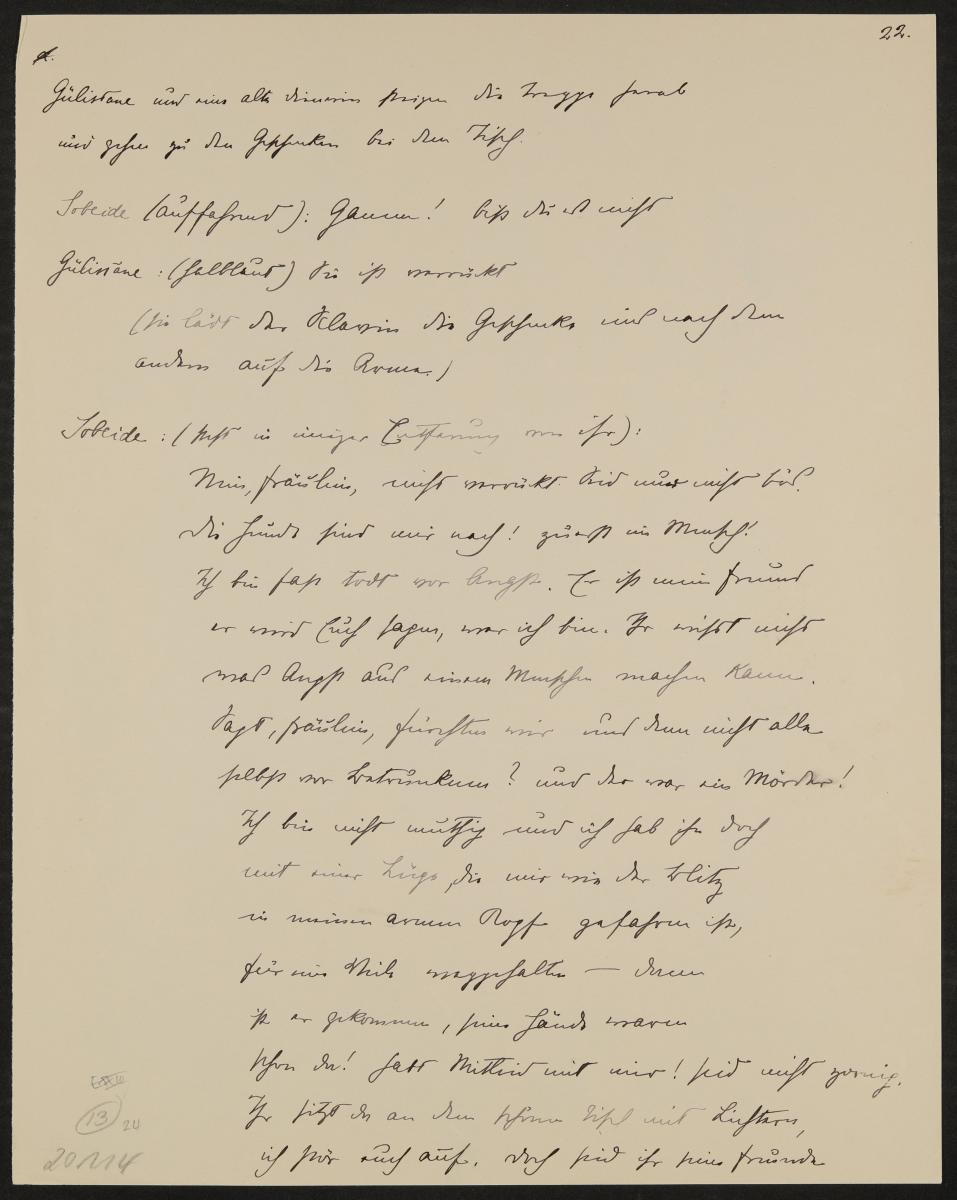 22.
d.
Gülistane und eine alte Dienerin steigen die Treppe herab
und gehen zu den Geschenken bei dem Tisch.
Sobeide (auffahrend): Ganem! bist du es nicht
Gülistane: (halblaut) Sie ist verrückt
(sie lädt der Sclavin die Geschenke eins nach dem
andern auf die Arme.)
Sobeide: (steht in einiger Entfernung von ihr):
Nein, Fräulein, nicht verrückt. Seid nur nicht bös.
die Hunde sind mir nach! zuerst ein Mensch!
Ich bin fast todt vor Angst. Er ist mein Freund
er wird Euch sagen, wer ich bin. Ihr wisst nicht
was Angst aus einem Menschen machen kann.
Sagt, Fräulein, fürchten wir uns denn nicht alle
selbst vor Betrunkenen? und der war ein Mörder!
Ich bin nicht muthig und ich hab ihn doch
mit einer Lüge, die mir wie der Blitz
in meinen armen Kopf gefahren ist,
für eine Weile weggehalten — dann
ist er gekommen, seine Hände waren
schon da! habt Mitleid mit mir! seid nicht zornig.
Ihr sitzt da an dem schönen Tisch mit Lichtern,
ich stör euch auf. doch seid ihr seine Freunde
13
20
201114